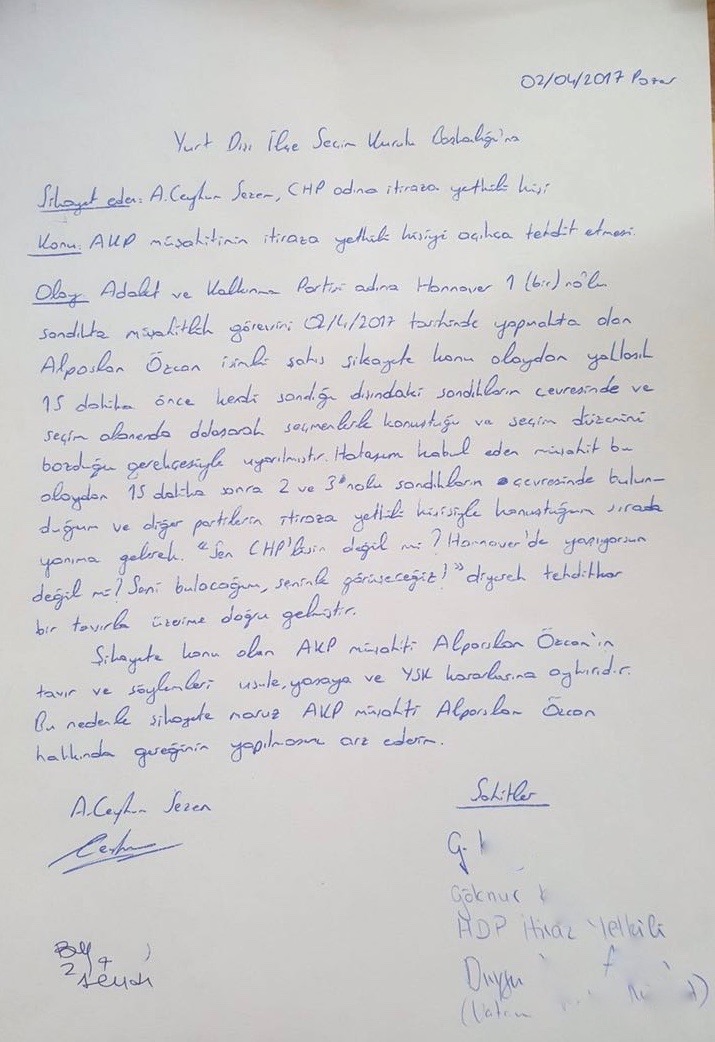 02/04/2017 Pazar
Yurt Dışı İlçe Seçim Kurulu Başkalığı'na
Şikayet eden: A. Ceyhun Sezen, CHP adına itiraza yetkili kişi
Konu: AKP müşahitinin itiraza yetkili kişiyi açıkça tehdit etmesi.
Olay Adalet ve Kalkınma Partisi adına Hannover 1 (bir) no'lu
sandıkta müşahitlik görevini 02/4/2017 tarihinde yapmakta olan
Alparslan Özcan isimli şahıs şikayete konu olaydan yaklaşık
15 dakika önce kendi sandığı dışındaki sandıkların çevresinde ve
seçim alanında dolaşarak seçmenlerle konuştuğu ve seçim düzenini
bozduğu gerekçesiyle uyarılmıştır. Hatasını kabul eden müşahit bu
olaydan 15 dakika sonra 2 ve 3 nolu sandıkların çevresinde bulun-
duğum ve diğer partilerin itiraza yetkili kişisiyle konuştuğum sırada
yanıma gelerek. "Sen CHP'lisin değil mi? Hannover'de yaşıyorsun
değil mi? Seni bulacağım, seninle görüşeceğiz!" diyerek tehditkar
bir tavırla üzerime doğru gelmiştir.
Şikayete konu olan AKP müşahiti Alparslan Özcan'ın
tavır ve söylemleri usule, yasaya ve YSK kararlarına aykırıdır.
Bu nedenle şikayete maruz AKP müşahiti Alparslan Özcan
hakkında gereğinin yapılmasını arz ederim.
A. Ceyhun Sezen
Şahitler
G.
Göknur
HDP itiraz Yetkili
Duygu
(Vatan